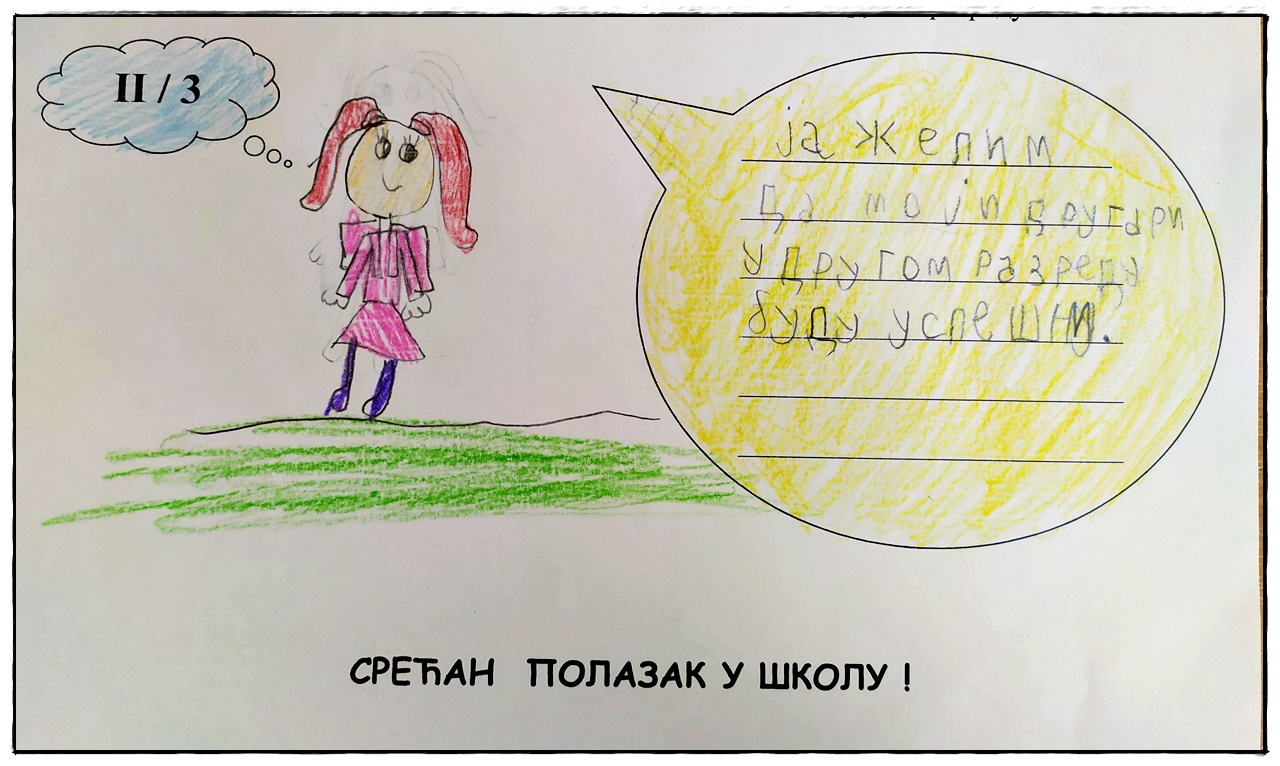 II / 3
ја желим
Да моји другари
у другом разреду
буду успешни.
СРЕЋАН ПОЛАЗАК У ШКОЛУ !